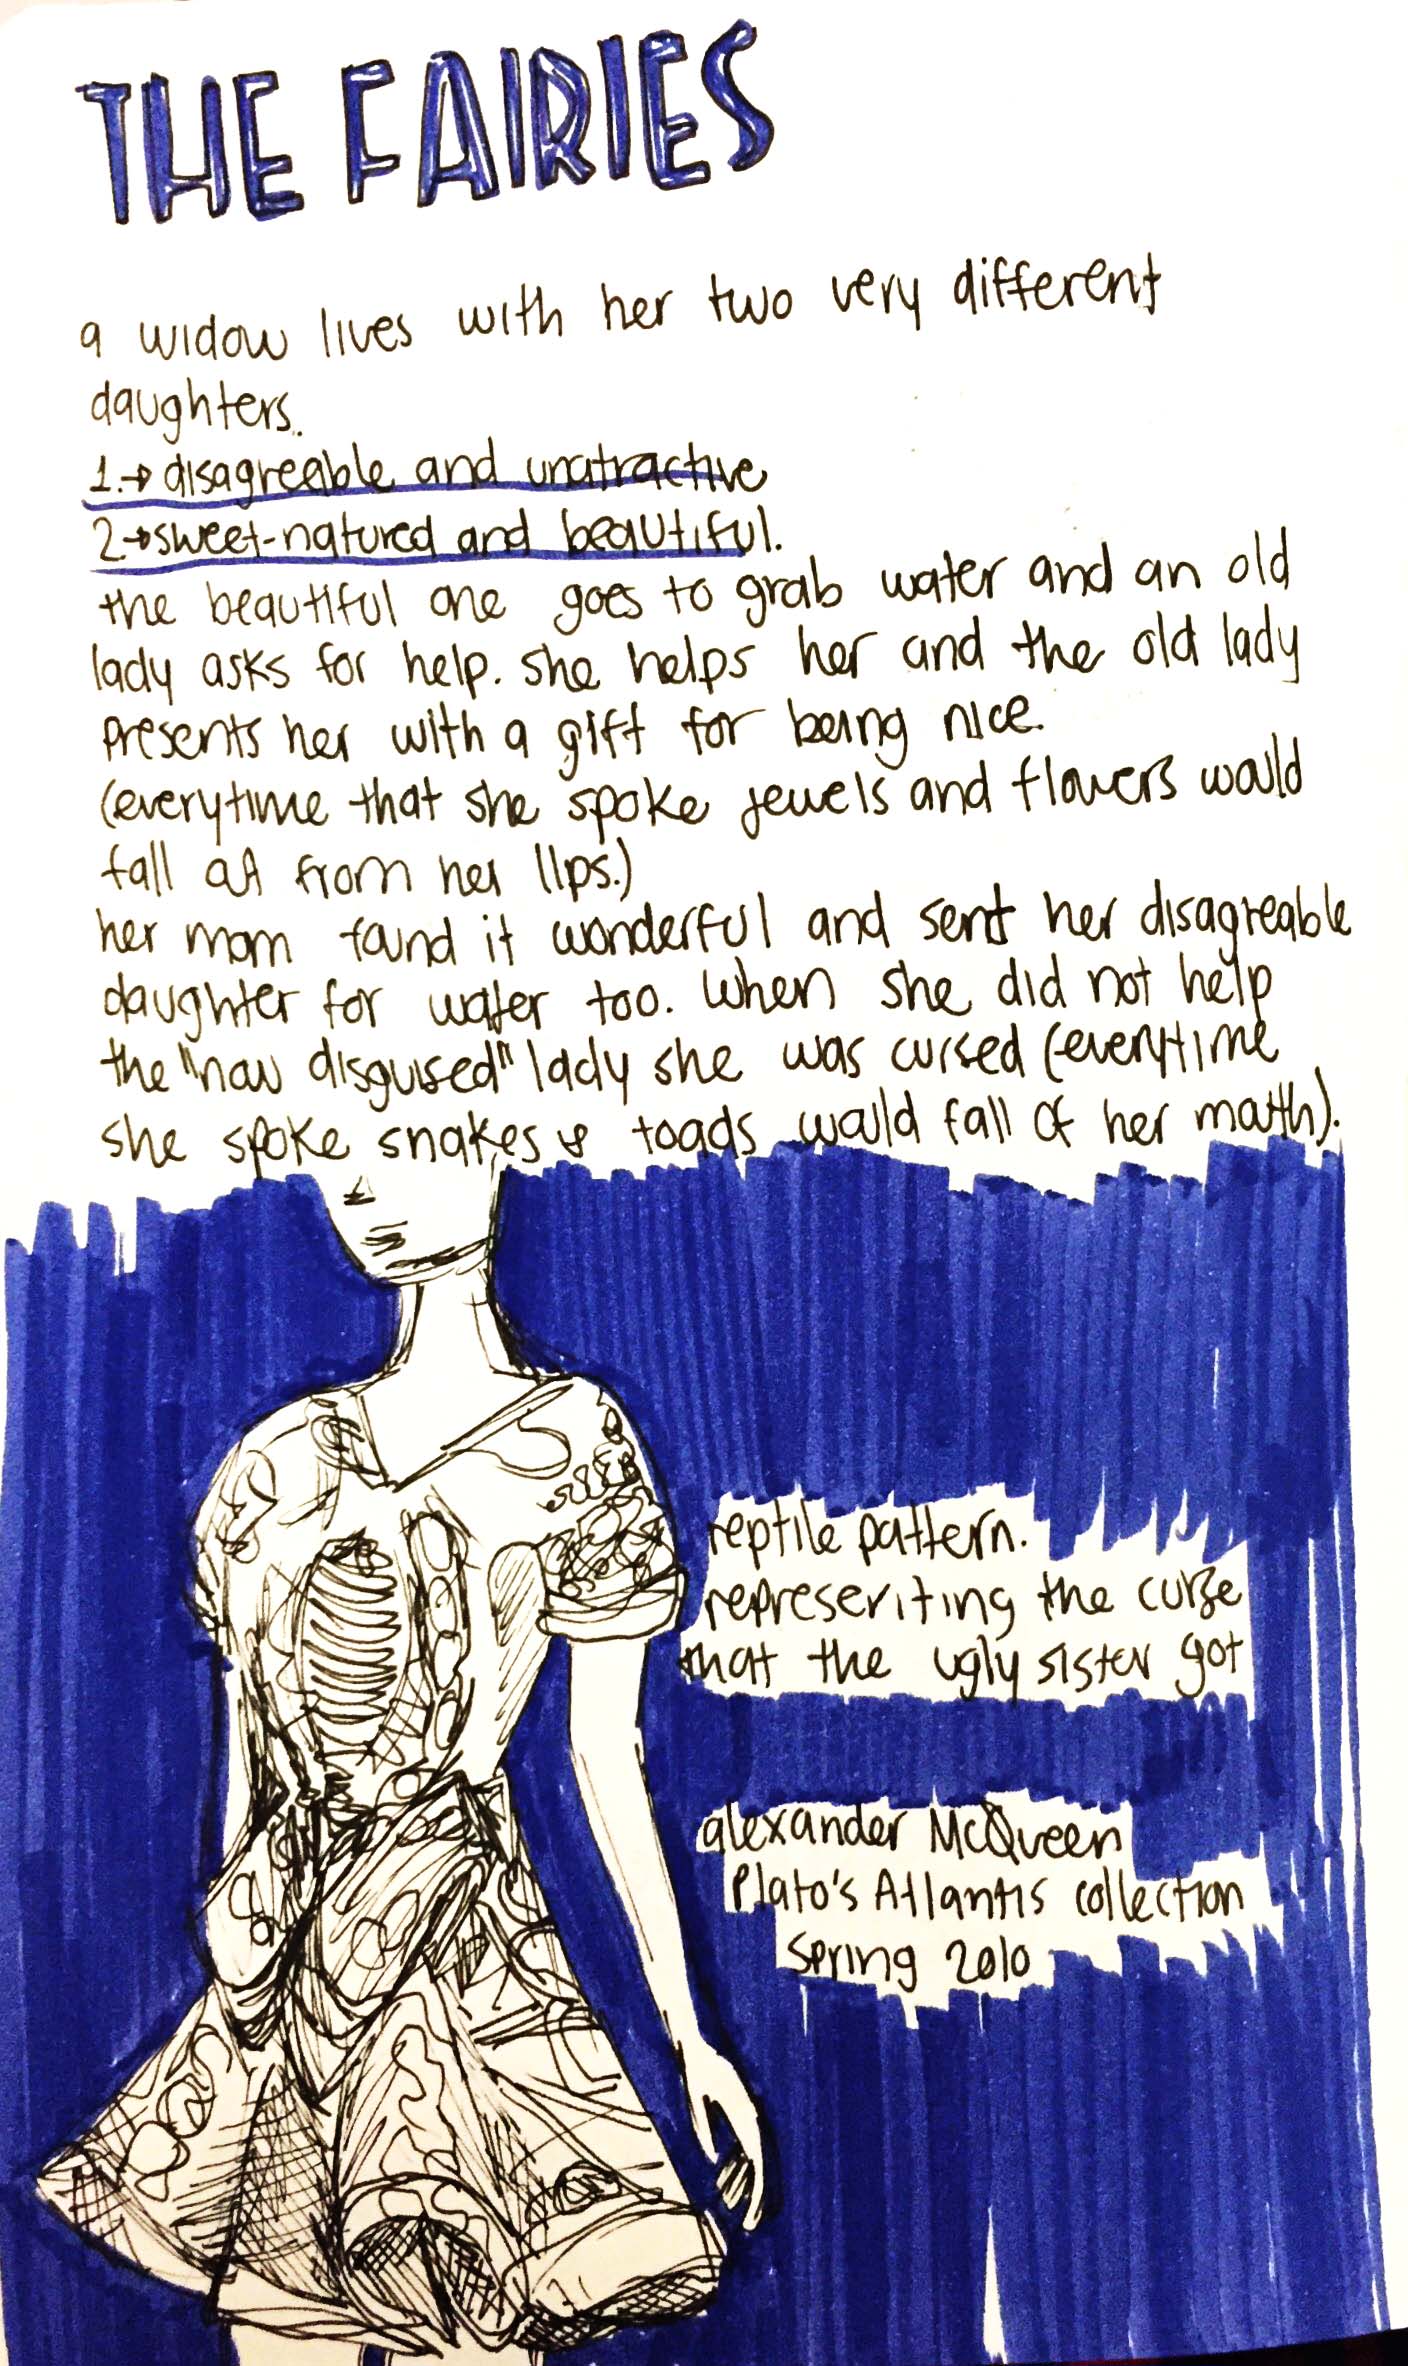 THE FAIRIES
a widow lives with her two very different
daughters.
1.→ disagreable and unatractive
2→sweet-natured and beautiful.
the beautiful one goes to grab water and an old
lady asks for help. she helps her and the old lady
presents her with a gift for being nice.
(everytime that she spoke jewels and flowers would
fall out from her lips.)
her mom found it wonderful and sent her disagreable
daughter for water too. when she did not help
the "now disguised" lady she was cursed (everytime
she spoke snakes & toads would fall of her mouth).
reptile pattern.
representing the curse
that the ugly sister got
alexander McQueen
Plato's Atlantis collection
spring 2010